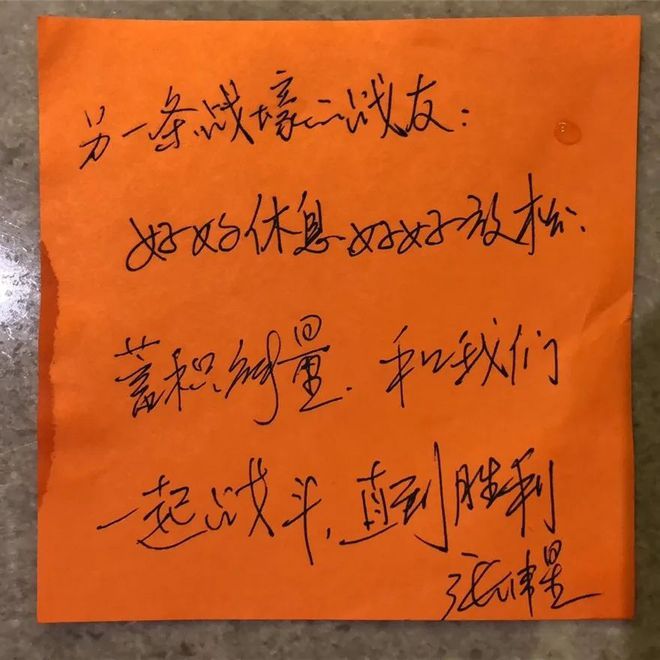 另一条战壕的战友：
好好休息好好放松.
蓄积能量.和我们
一起战斗，直到胜利
张伟星